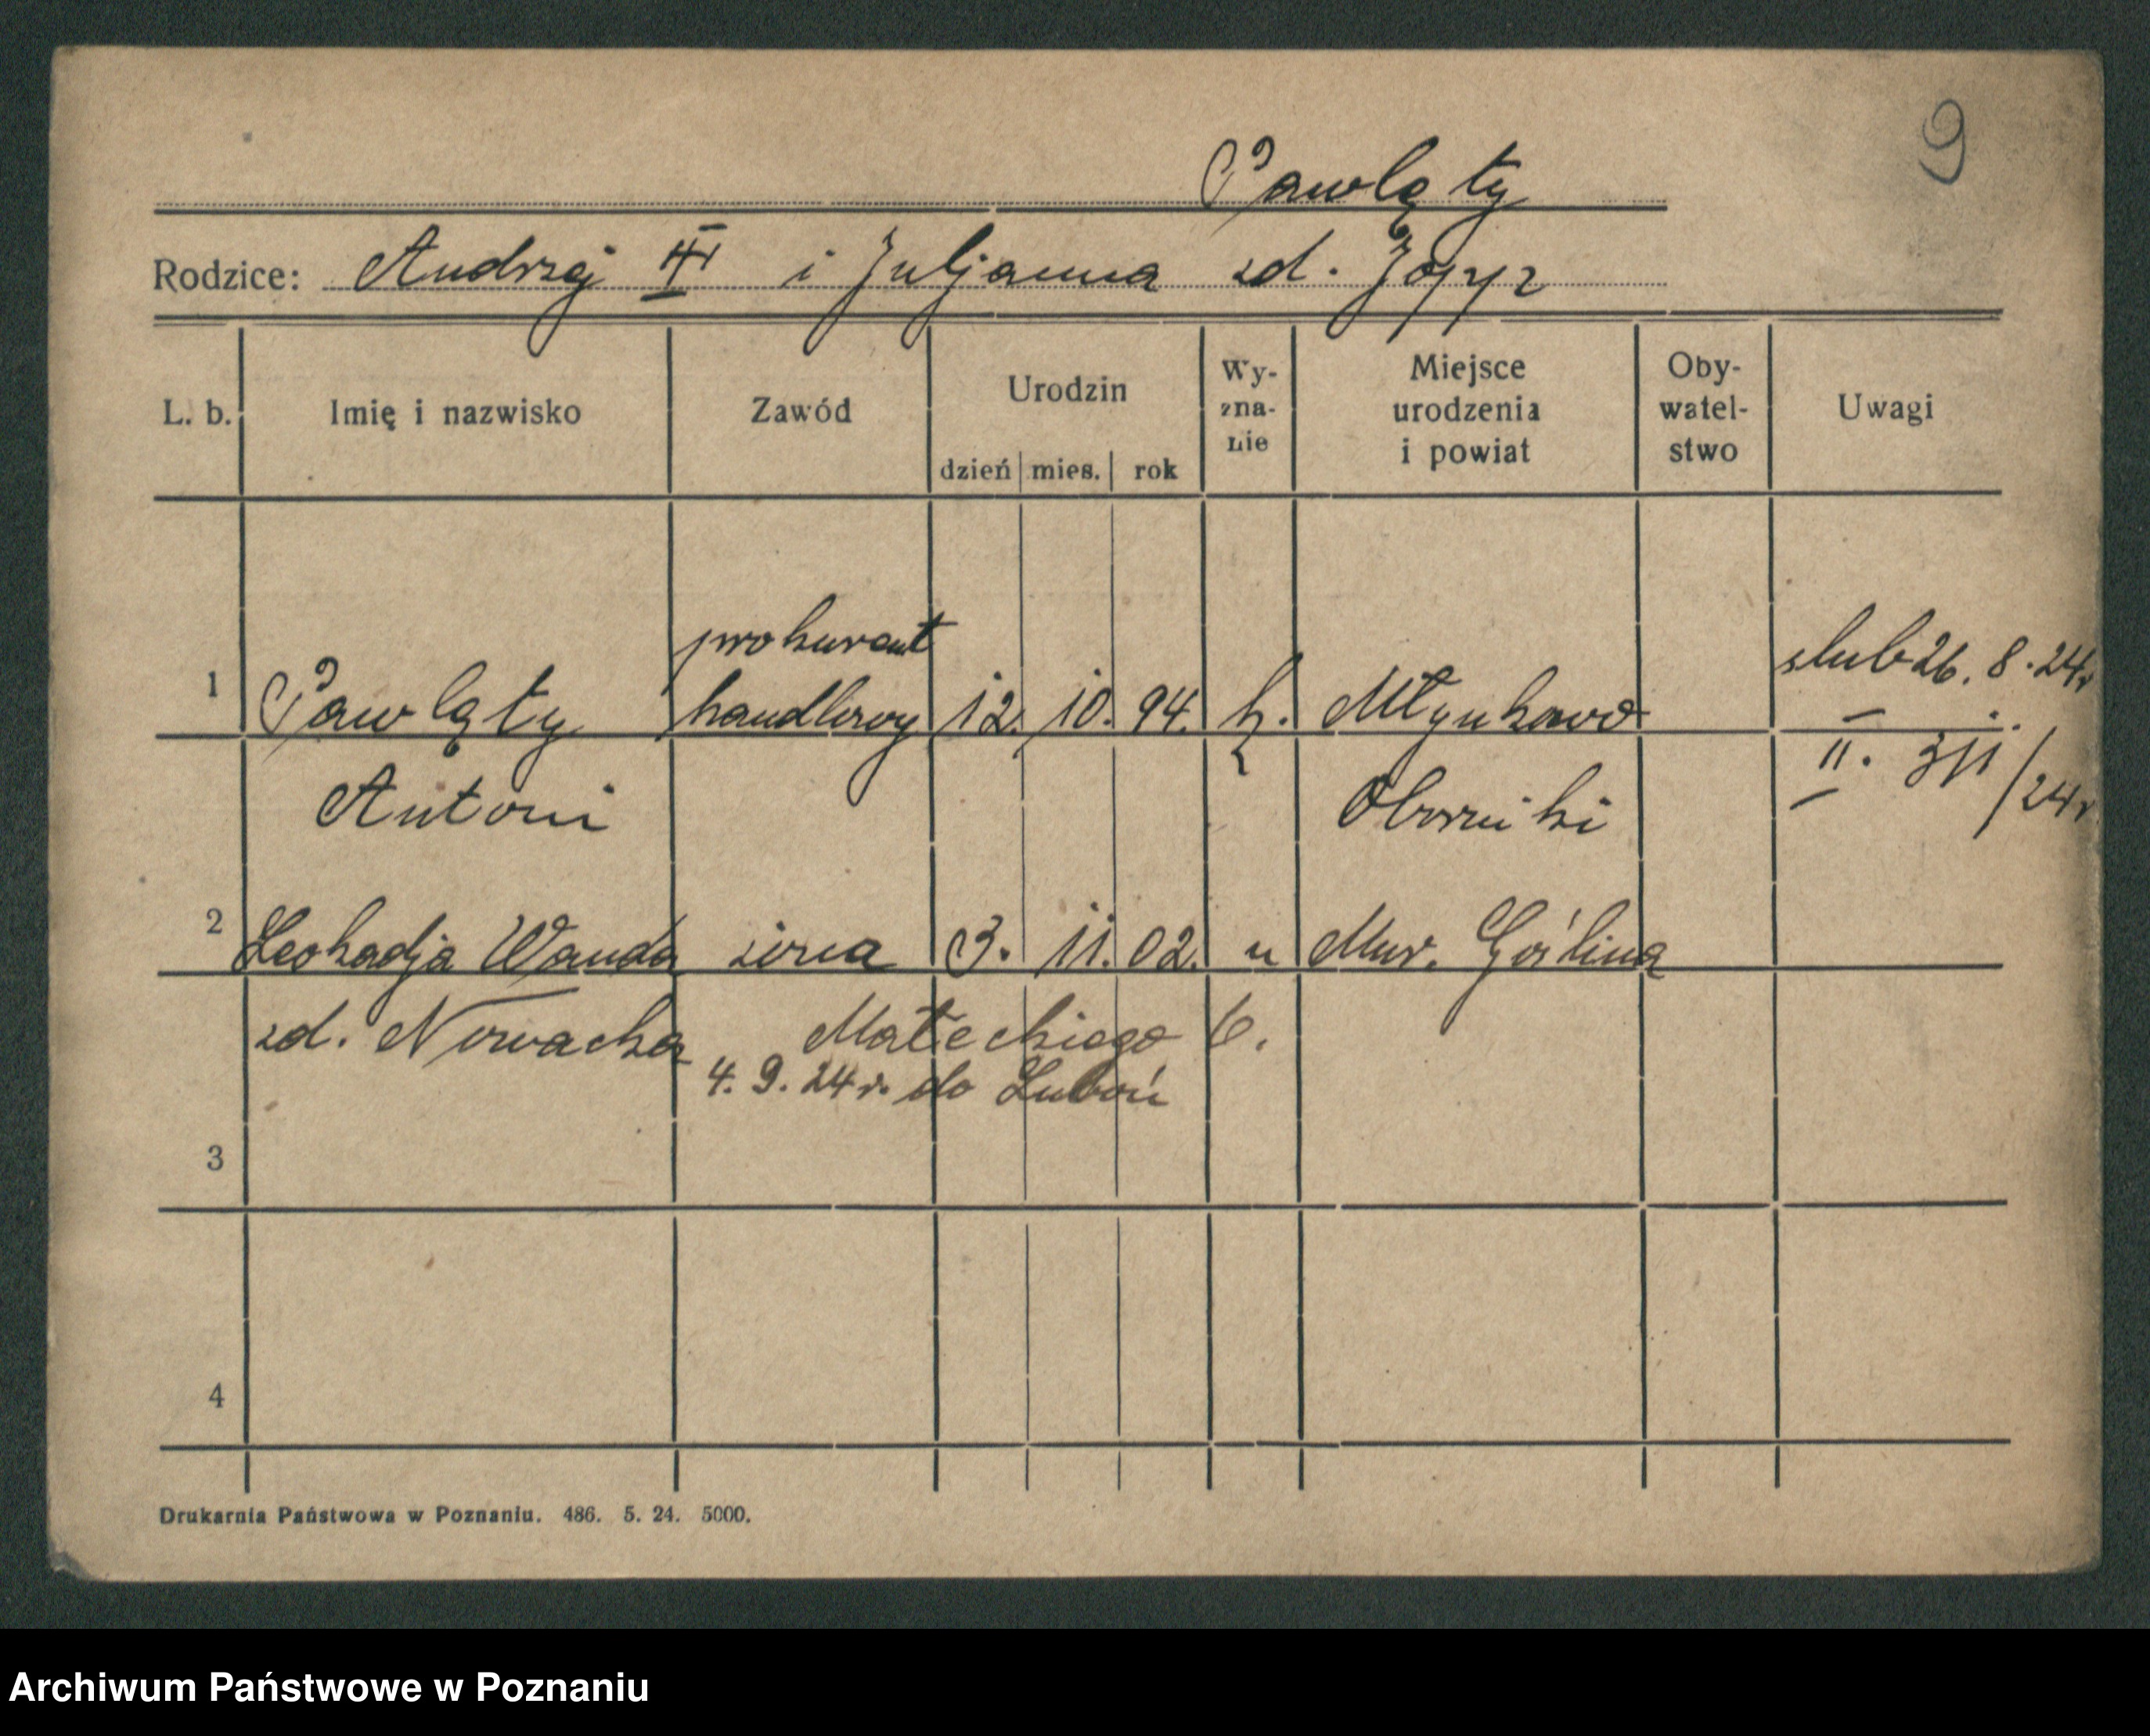 9
Pawląty
Rodzice: Andrzej III i Juljanna zd. Jopp
L. b. Imię i nazwisko Zawód Urodzin dzień mies. rok Wy- zna- nie Miejsce urodzenia i powiat Oby- watel- stwo Uwagi
prokurant ślub 26. 8. 24r
1 Pawląty handlowy 12. 10. 94. k. Młynkowo
II. /24r
Antoni Oborniki
2 Leokadja Wanda żona 3. 11. 02. " Mur. Goślina
zd. Nowacka Małeckiego 6.
4. 9. 24 r. do Luboń
3
4
Drukarnia Państwowa w Poznaniu. 486. 5. 24. 5000.
Archiwum Państwowe w Poznaniu